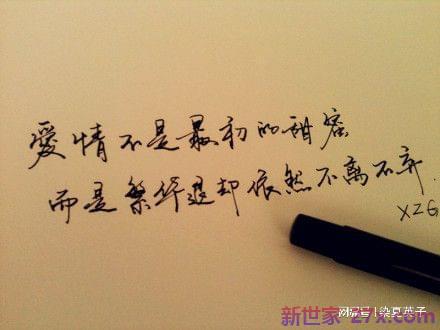 愛情不是最初的甜蜜
而是繁华退却依然不离不弃.
XZG
网易号 | 染夏英子
新世家-27x.com